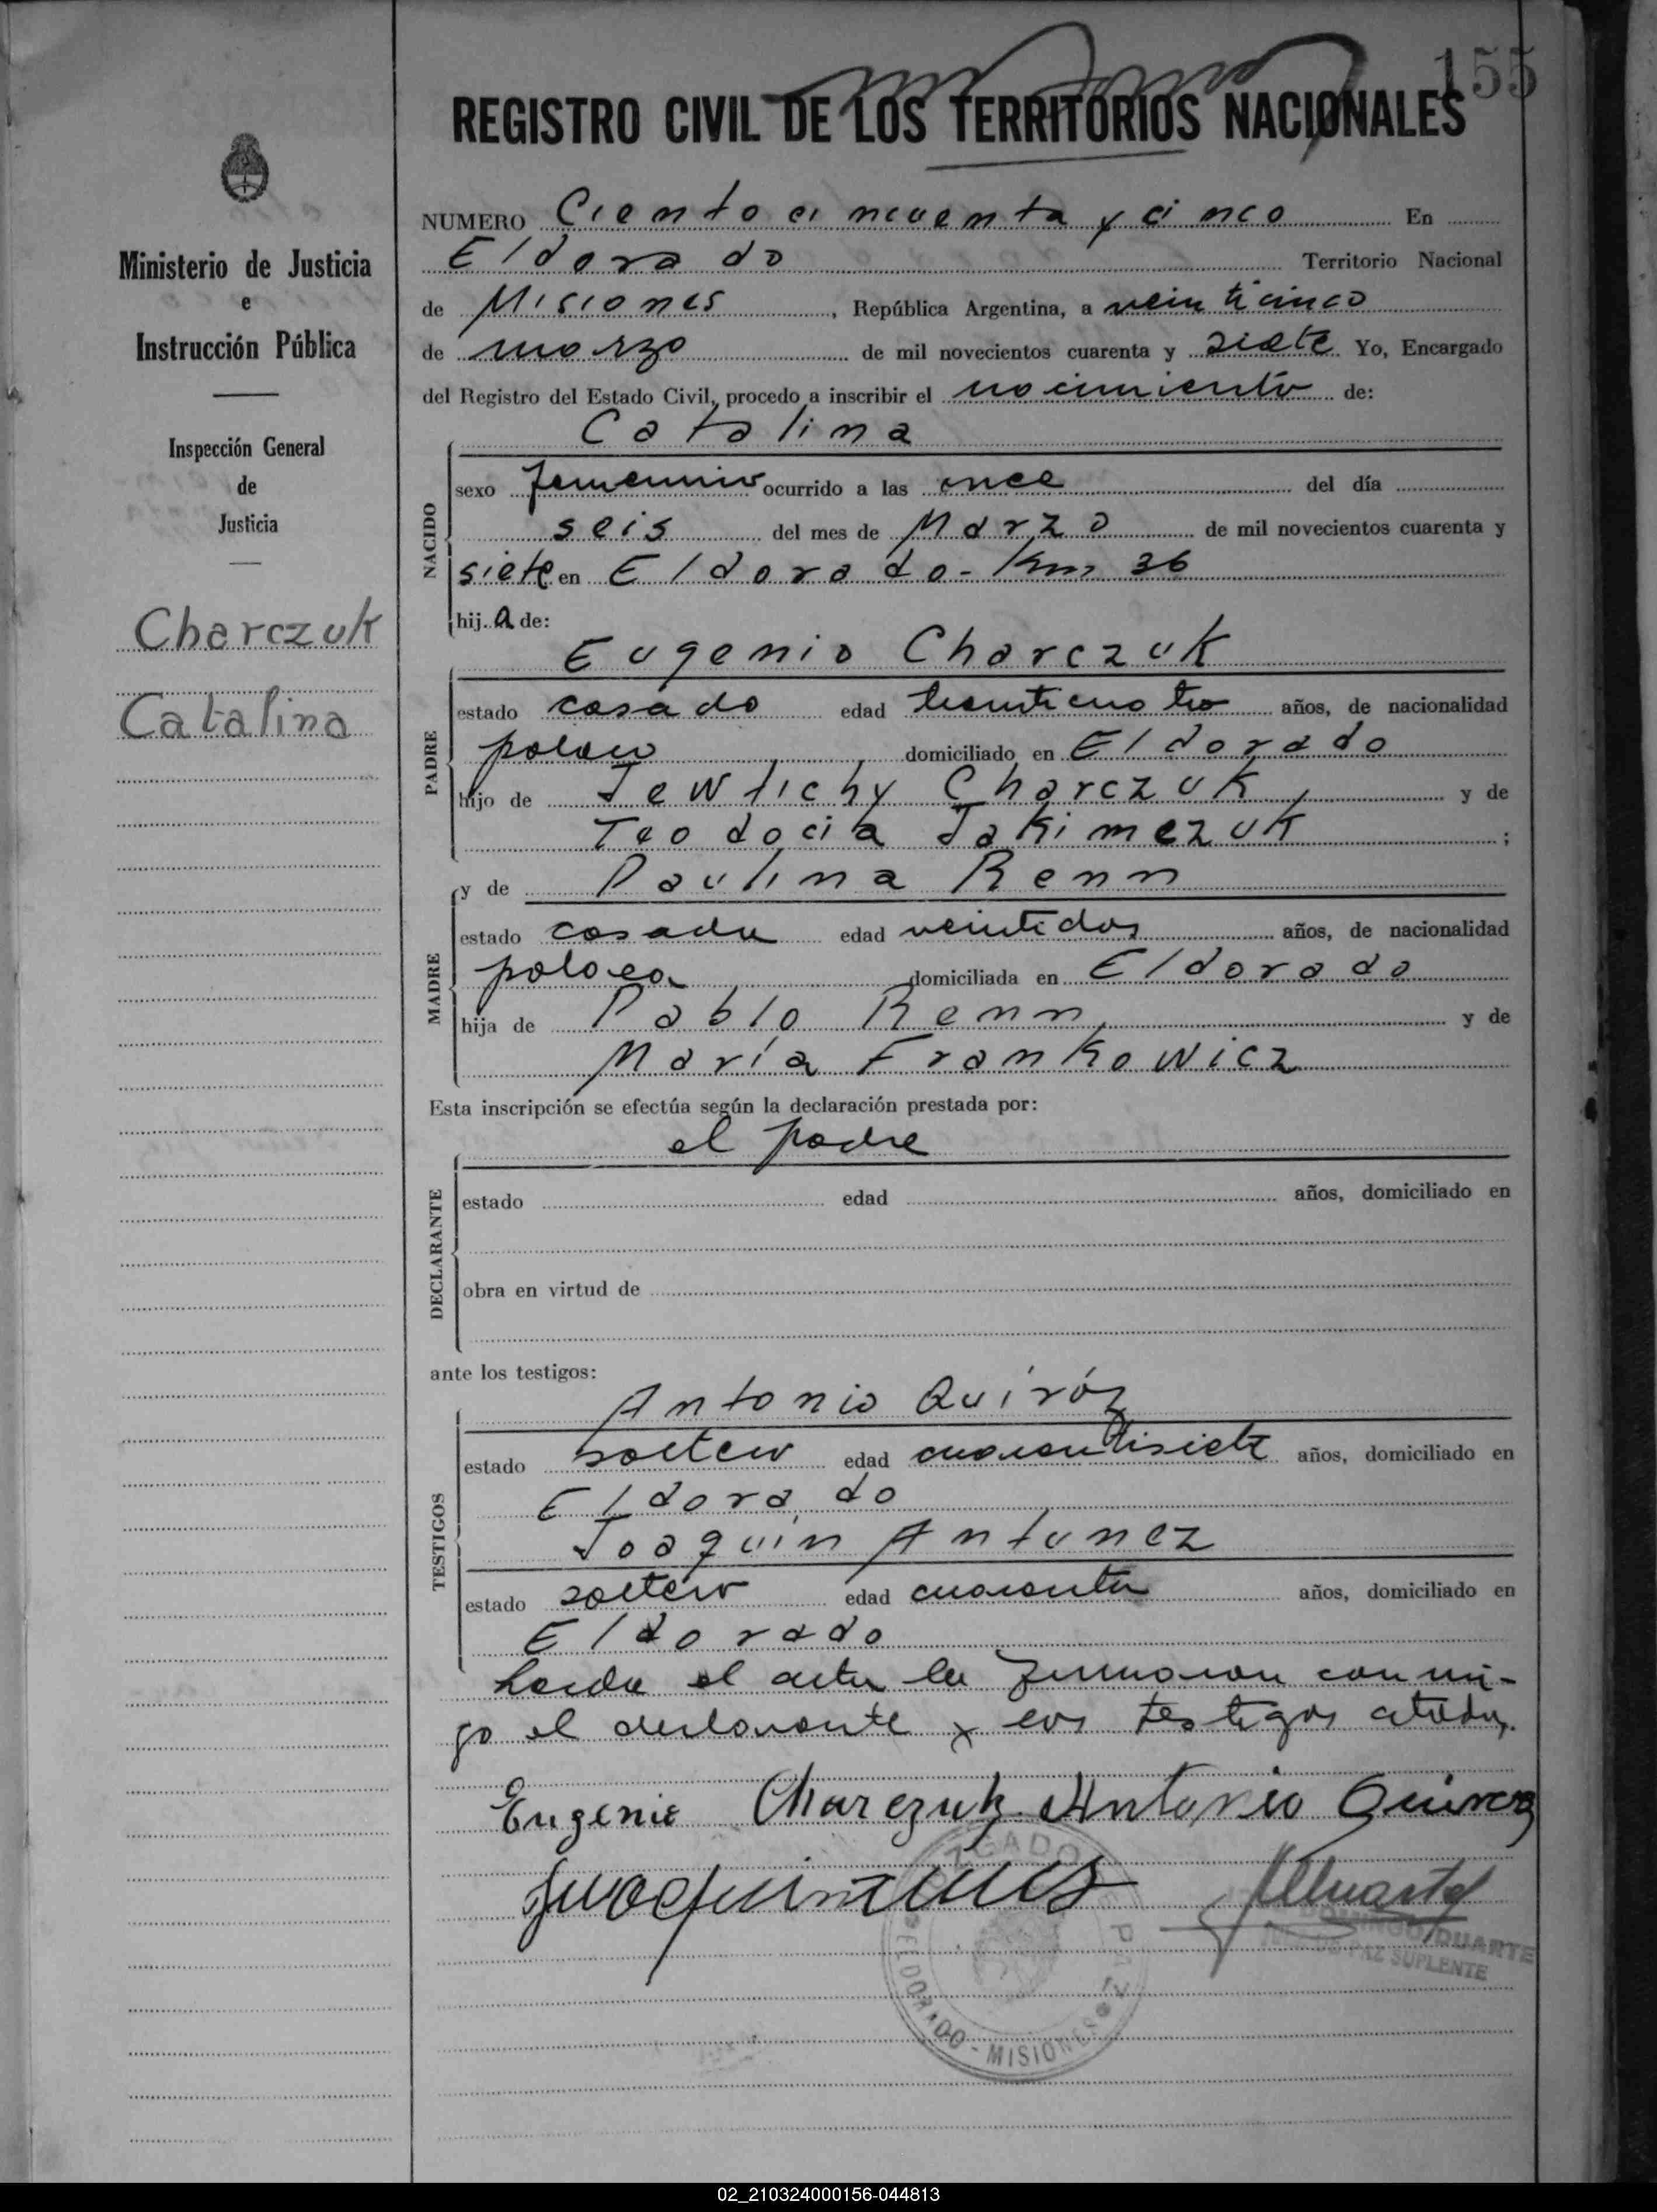 155
REGISTRO CIVIL DE LOS TERRITORIOS NACIONALES
Ministerio de Justicia
e
Instrucción Pública
Inspección General
de
Justicia
Charczuk
Catalina
NUMERO Ciento cincuenta y cinco En
Eldorado Territorio Nacional
de Misiones, República Argentina, a veinticinco
de marzo de mil novecientos cuarenta y siete Yo, Encargado
del Registro del Estado Civil, procedo a inscribir el nacimiento de:
Catalina
NACIDO
sexo femenino ocurrido a las once del día
seis del mes de Marzo de mil novecientos cuarenta y
siete en Eldorado - Km 36
hija de:
Eugenio Charczuk
PADRE
estado casado edad años, de nacionalidad
polaco domiciliado en Eldorado
hijo de Jewtichy Charczuk y de
Teodocia Jakimczuk ;
y de Paulina Renn
MADRE
estado casada edad veintidos años, de nacionalidad
polaca domiciliada en Eldorado
hija de Pablo Renn y de
María Frankowicz
Esta inscripción se efectúa según la declaración prestada por:
el padre
DECLARANTE
estado edad años, domiciliado en
obra en virtud de
ante los testigos:
Antonio Quiróz
TESTIGOS
estado soltero edad cuarentisiete años, domiciliado en
Eldorado
Joaquín Antunez
estado soltero edad cuarenta años, domiciliado en
Eldorado
Leida el acta la firmaron conmi-
go el declarante y los testigos citados.
Eugenie Charczuk Antonio Quiroz
JUZGADO DE PAZ
ELDORADO - MISIONES
DOMINGO DUARTE
JUEZ DE PAZ SUPLENTE
02_210324000156-044813